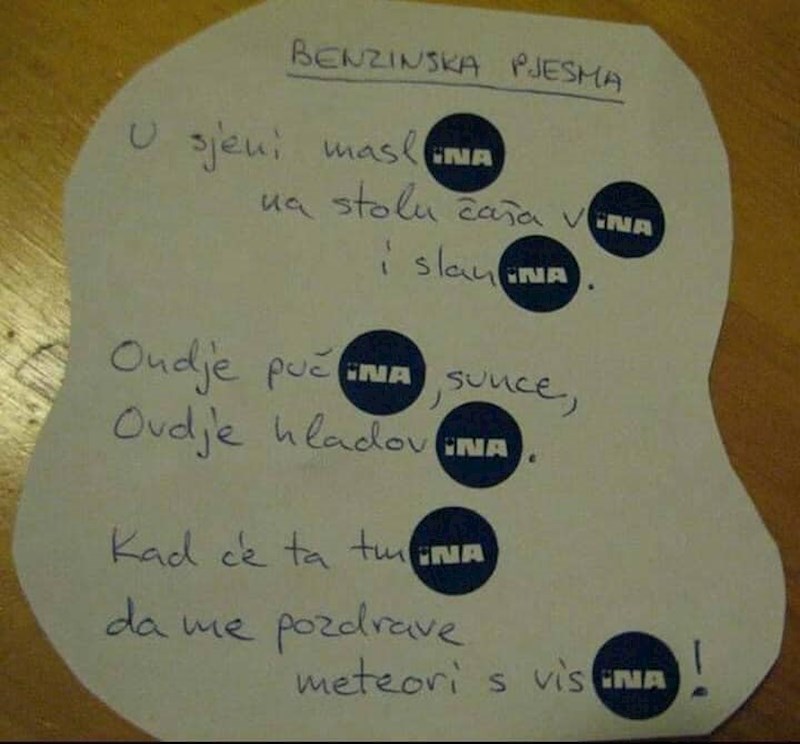 BENZINSKA PJESMA
U sjeni maslINA
na stolu čaša vINA
i slanINA.
Ondje pučINA, sunce,
Ovdje hladovINA.
Kad će ta tmINA
da me pozdrave
meteori s visINA!